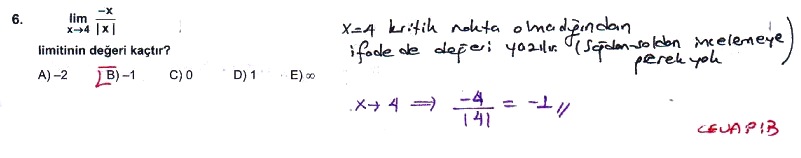 6. lim x→4 -x / |x|
limitinin değeri kaçtır?
A) –2 B) –1 C) 0 D) 1 E) ∞
x=4 kritik nokta olmadığından
ifadede değeri yazılır. (Sağdan-soldan incelemeye
gerek yok)
x→4 ⟹ -4 / |4| = -1 //
CEVAP:B